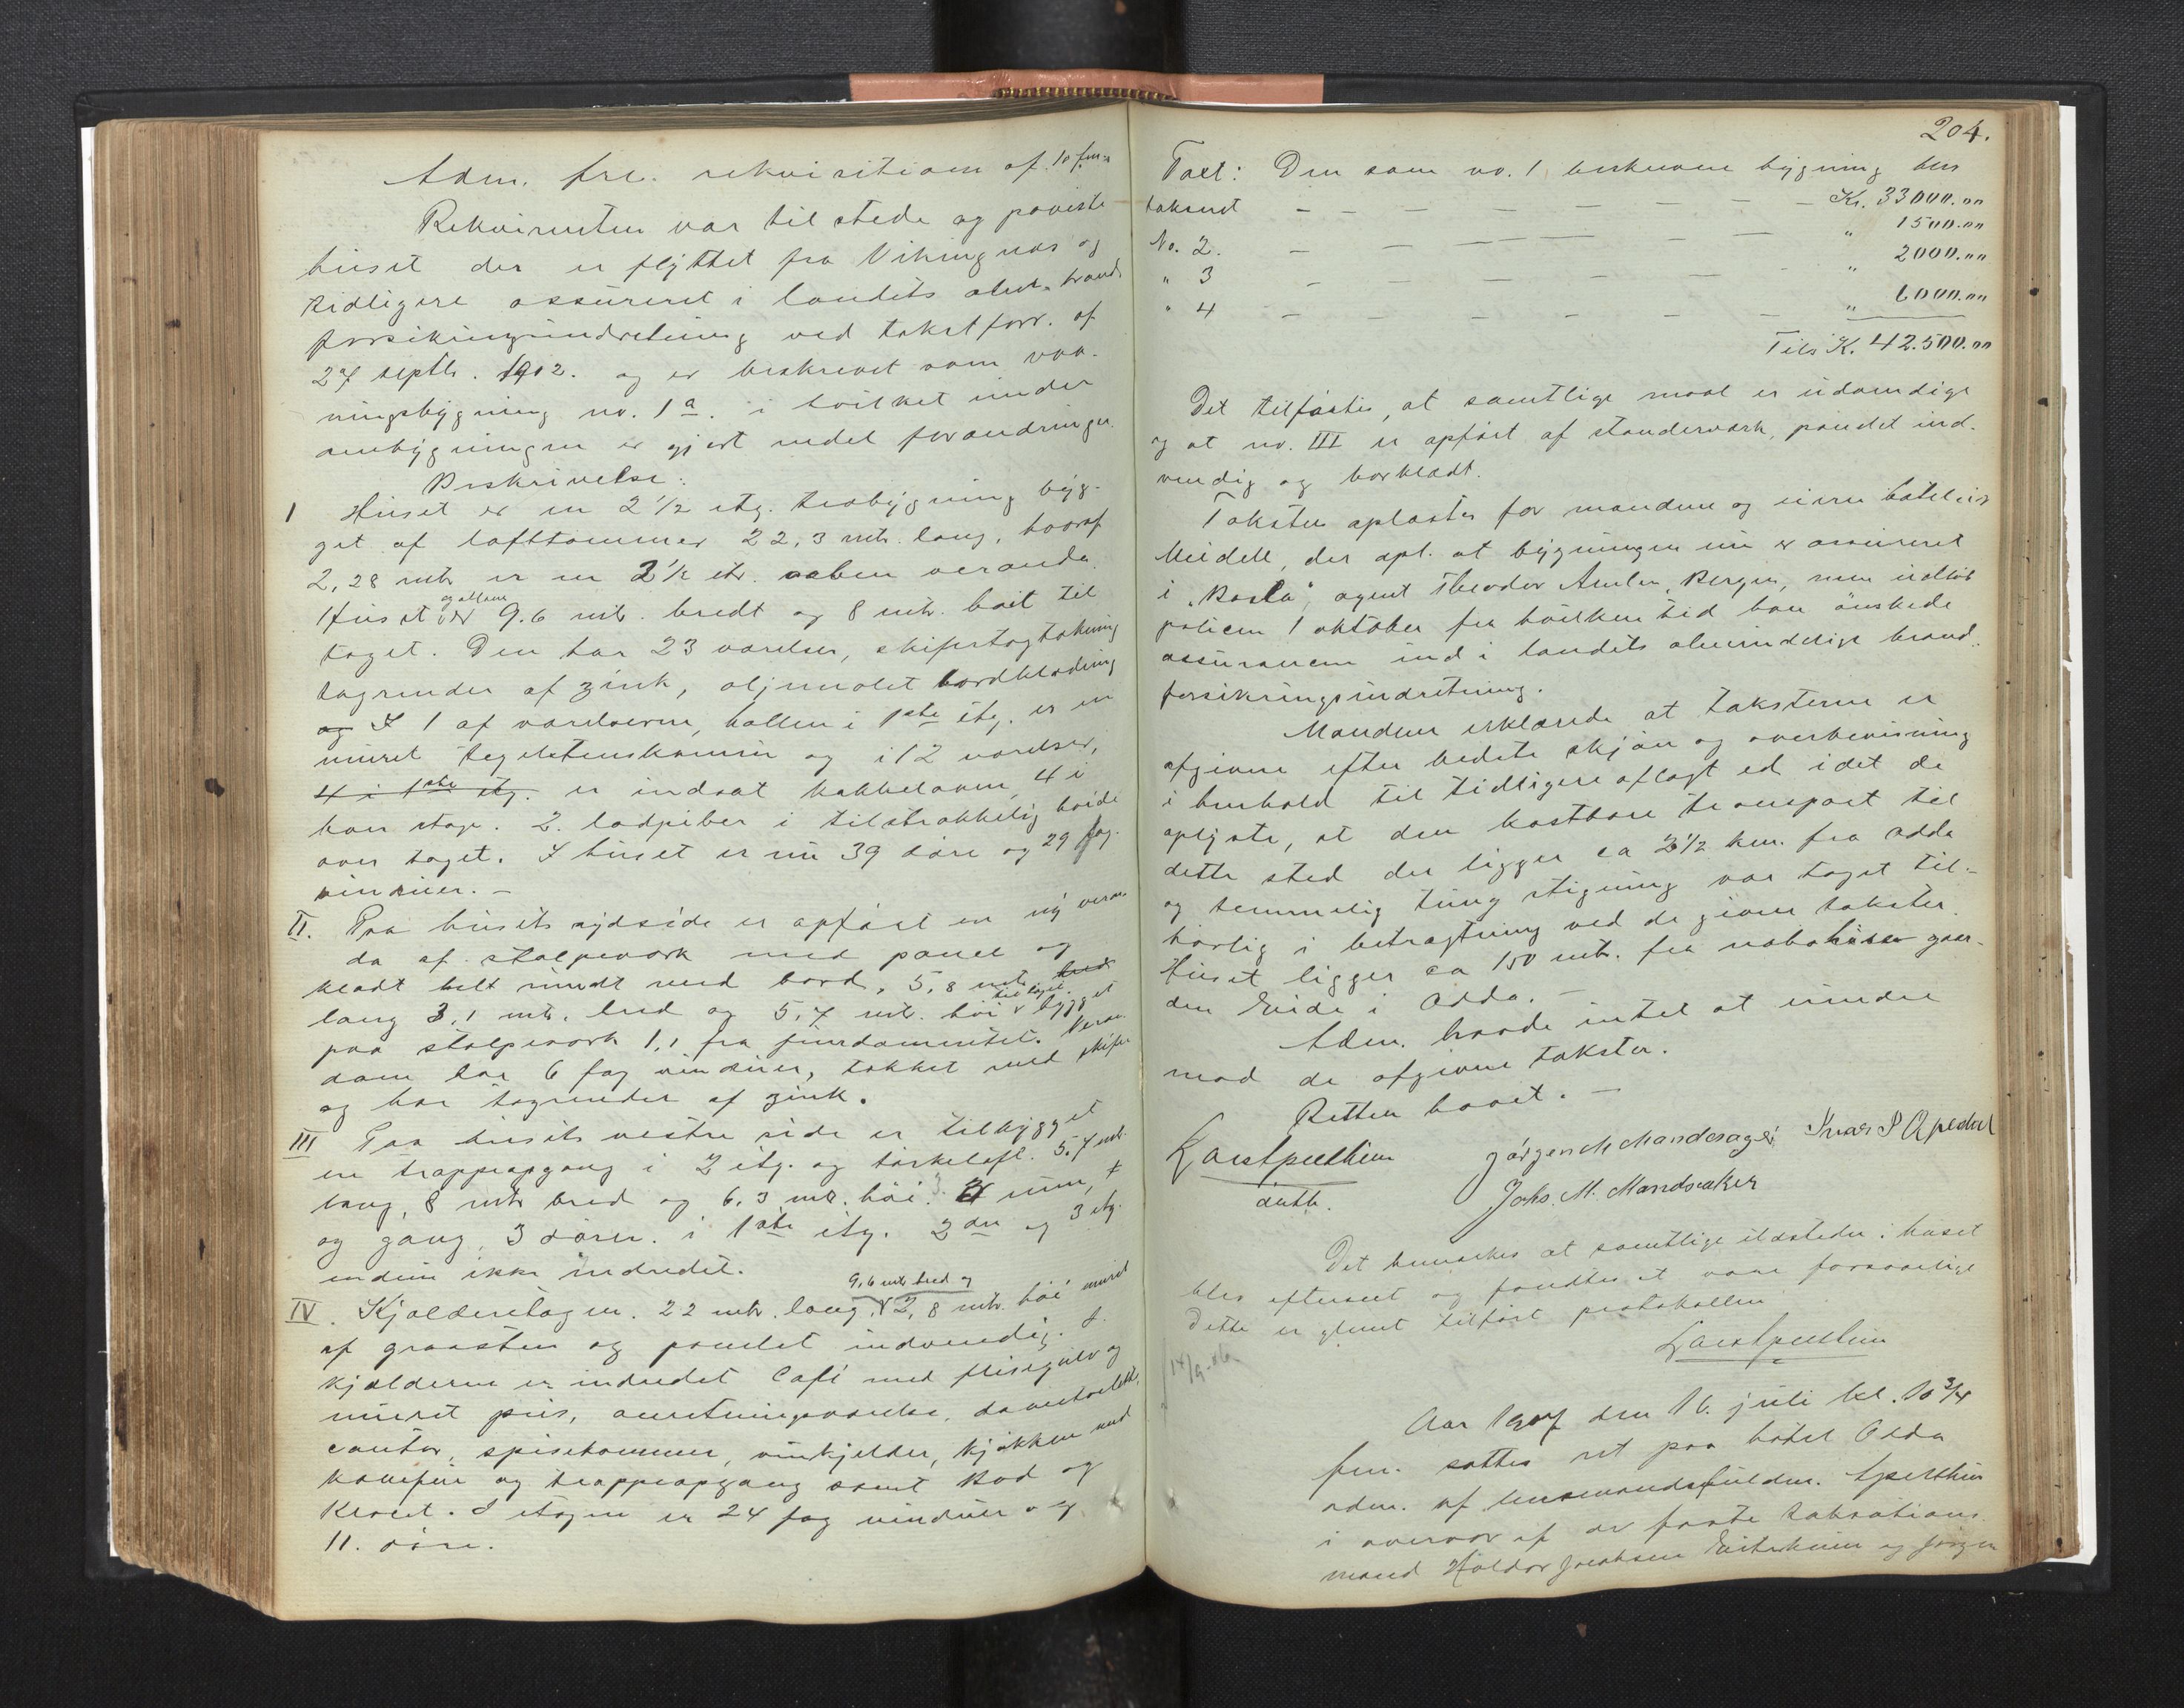 Adm. fre. rekvisition af 10 fm.
Rekvirenten var tilstede og paaviste
huset der er flyttet fra Vikingnæs og
tidligere assureret i landets almt. brand-
forsikringsindretning ved takstforr. af
27 septb. 1902. og er beskrevet som vaa-
ningsbygning no. 1a. i hvilket under
ombygningen er gjort endel forandringer.
Beskrivelse:
1 Huset er en 2 1/2 etg. træbygning byg-
get af lafttømmer 22,3 mtr. lang, hvoraf
2,28 mtr er en 2 1/2 et. aaben veranda
og altane
Huset er 9.6 mtr. bredt og 8 mtr. høit til
taget. Den har 23 værelser, skifertagtækning
tagrender af zink, oljemalet bordklædning
og I 1 af værelserne, hallen i 1ste etg. er en
muret teglstenskamin og i 12 værelser,
4 i 1ste etg. er indsat kakkelovne, 4 i
hver etage. 2. ladpiber i tilstrækkelig høide
over taget. I huset er nu 39 døre og 29 fag.
vinduer. —
II. Paa husets sydside er opført en ny veran-
da af stolpeværk med panel og
klædt helt rundt med bord, 5,8 mtr. bred
lang 3,1 mtr. bred og 5,7 mtr. høi til taget. bygget
paa stolpeværk 1,1 fra fundamentet. Veran-
daen har 6 fag vinduer, tækket med skifer
og har tagrender af zink.
III Paa husets vestre side er tilbygget
en trappeopgang i 2 etg. og tørkeloft. 5.7 mtr.
lang, 8 mtr bred og 6.3 mtr. høi. 3 rum,
og gang, 3 dører. i 1ste etg. 2den og 3 etg.
endnu ikke indredet.
9,6 mtr. bred og
IV. Kjælderetagen. 22 mtr. lang, 2,8 mtr. høi muret
af graasten og panelet indvendig. I
kjælderen er indredet Café med flisegulv og
muret peis, anretningsværelse, dametoilett,
contor, spisekammer, vinkjelder, kjøkken med
komfur og trappeopgang samt Bod og
Kloset. I etagen er 24 fag vinduer og
11. døre.
204.
Taxt: Den som no. 1 beskrevne bygning blev
takseret — — — — — — — Kr. 33000.00
No. 2. — — — — — — " 1500.00
" 3 — — — — — " 2000.00
" 4 — — — — — — " 6000.00
Tils K. 42.500.00
Det tilføies, at samtlige maal er udvendige
og at no. III er opført af standerværk, panelet ind-
vendig og borklædt.
Taksten oplæstes for mændene og eieren hoteleier
Meidell, der opl. at bygningen nu er assureret
i "Baslo", agent Theodor Amlen, Bergen, men udløb
policen 1 oktober fra hvilken tid han ønskede
assurancen ind i landets almindelige brand-
forsikringsindretning.
Mændene erklærede at taksterne er
afgivne efter bedste skjøn og overbevisning
i henhold til tidligere aflagt ed idet de
oplyste, at den kostbare transport til
dette sted der ligger ca 2 1/2 km. fra Odda
og temmelig tung stigning var taget til-
børlig i betragtning ved de givne takster.
Huset ligger ca 150 mtr. fra nabohuser gaar-
den Eide i Odda. —
Adm. havde intet at erindre
mod de afgivne takster.
Retten hævet. —
Lars Apeltthun Jørgen M Mandsager Ivar P Apedal
constb. Johs. M. Mandsaker
Det bemærkes at samtlige ildsteder i huset
blev efterseet og fandtes at være forsvarlige
Dette er glemt tilført protokollen
Lars Apeltthun
14/9-06
Aar 1907 den 16. juli kl. 10 3/4
fm. sattes ret paa hotel Odda
adm. af lensmandsfuldm. Apeltthun
i overvær af de faste taksations-
mænd Haldor Jacobsen Eitrheim og Jørgen